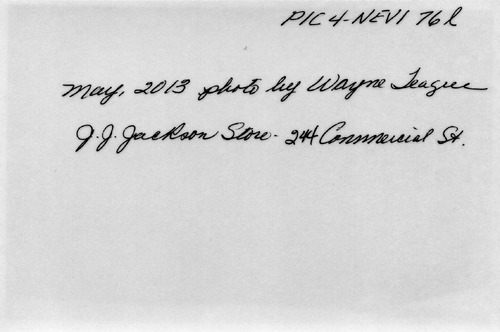 PIC 4-NEVI 76l
May, 2013 photo by Wayne Teague
J.J. Jackson Store - 244 Commercial St.